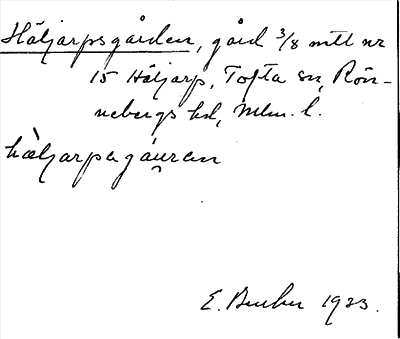 Häljarpsgården, gård 3/8 mtl nr
15 Häljarp, Tofta sn, Rön-
nebergs hd, Mlm. l.
hàljarpsgáụran
E. 1933.